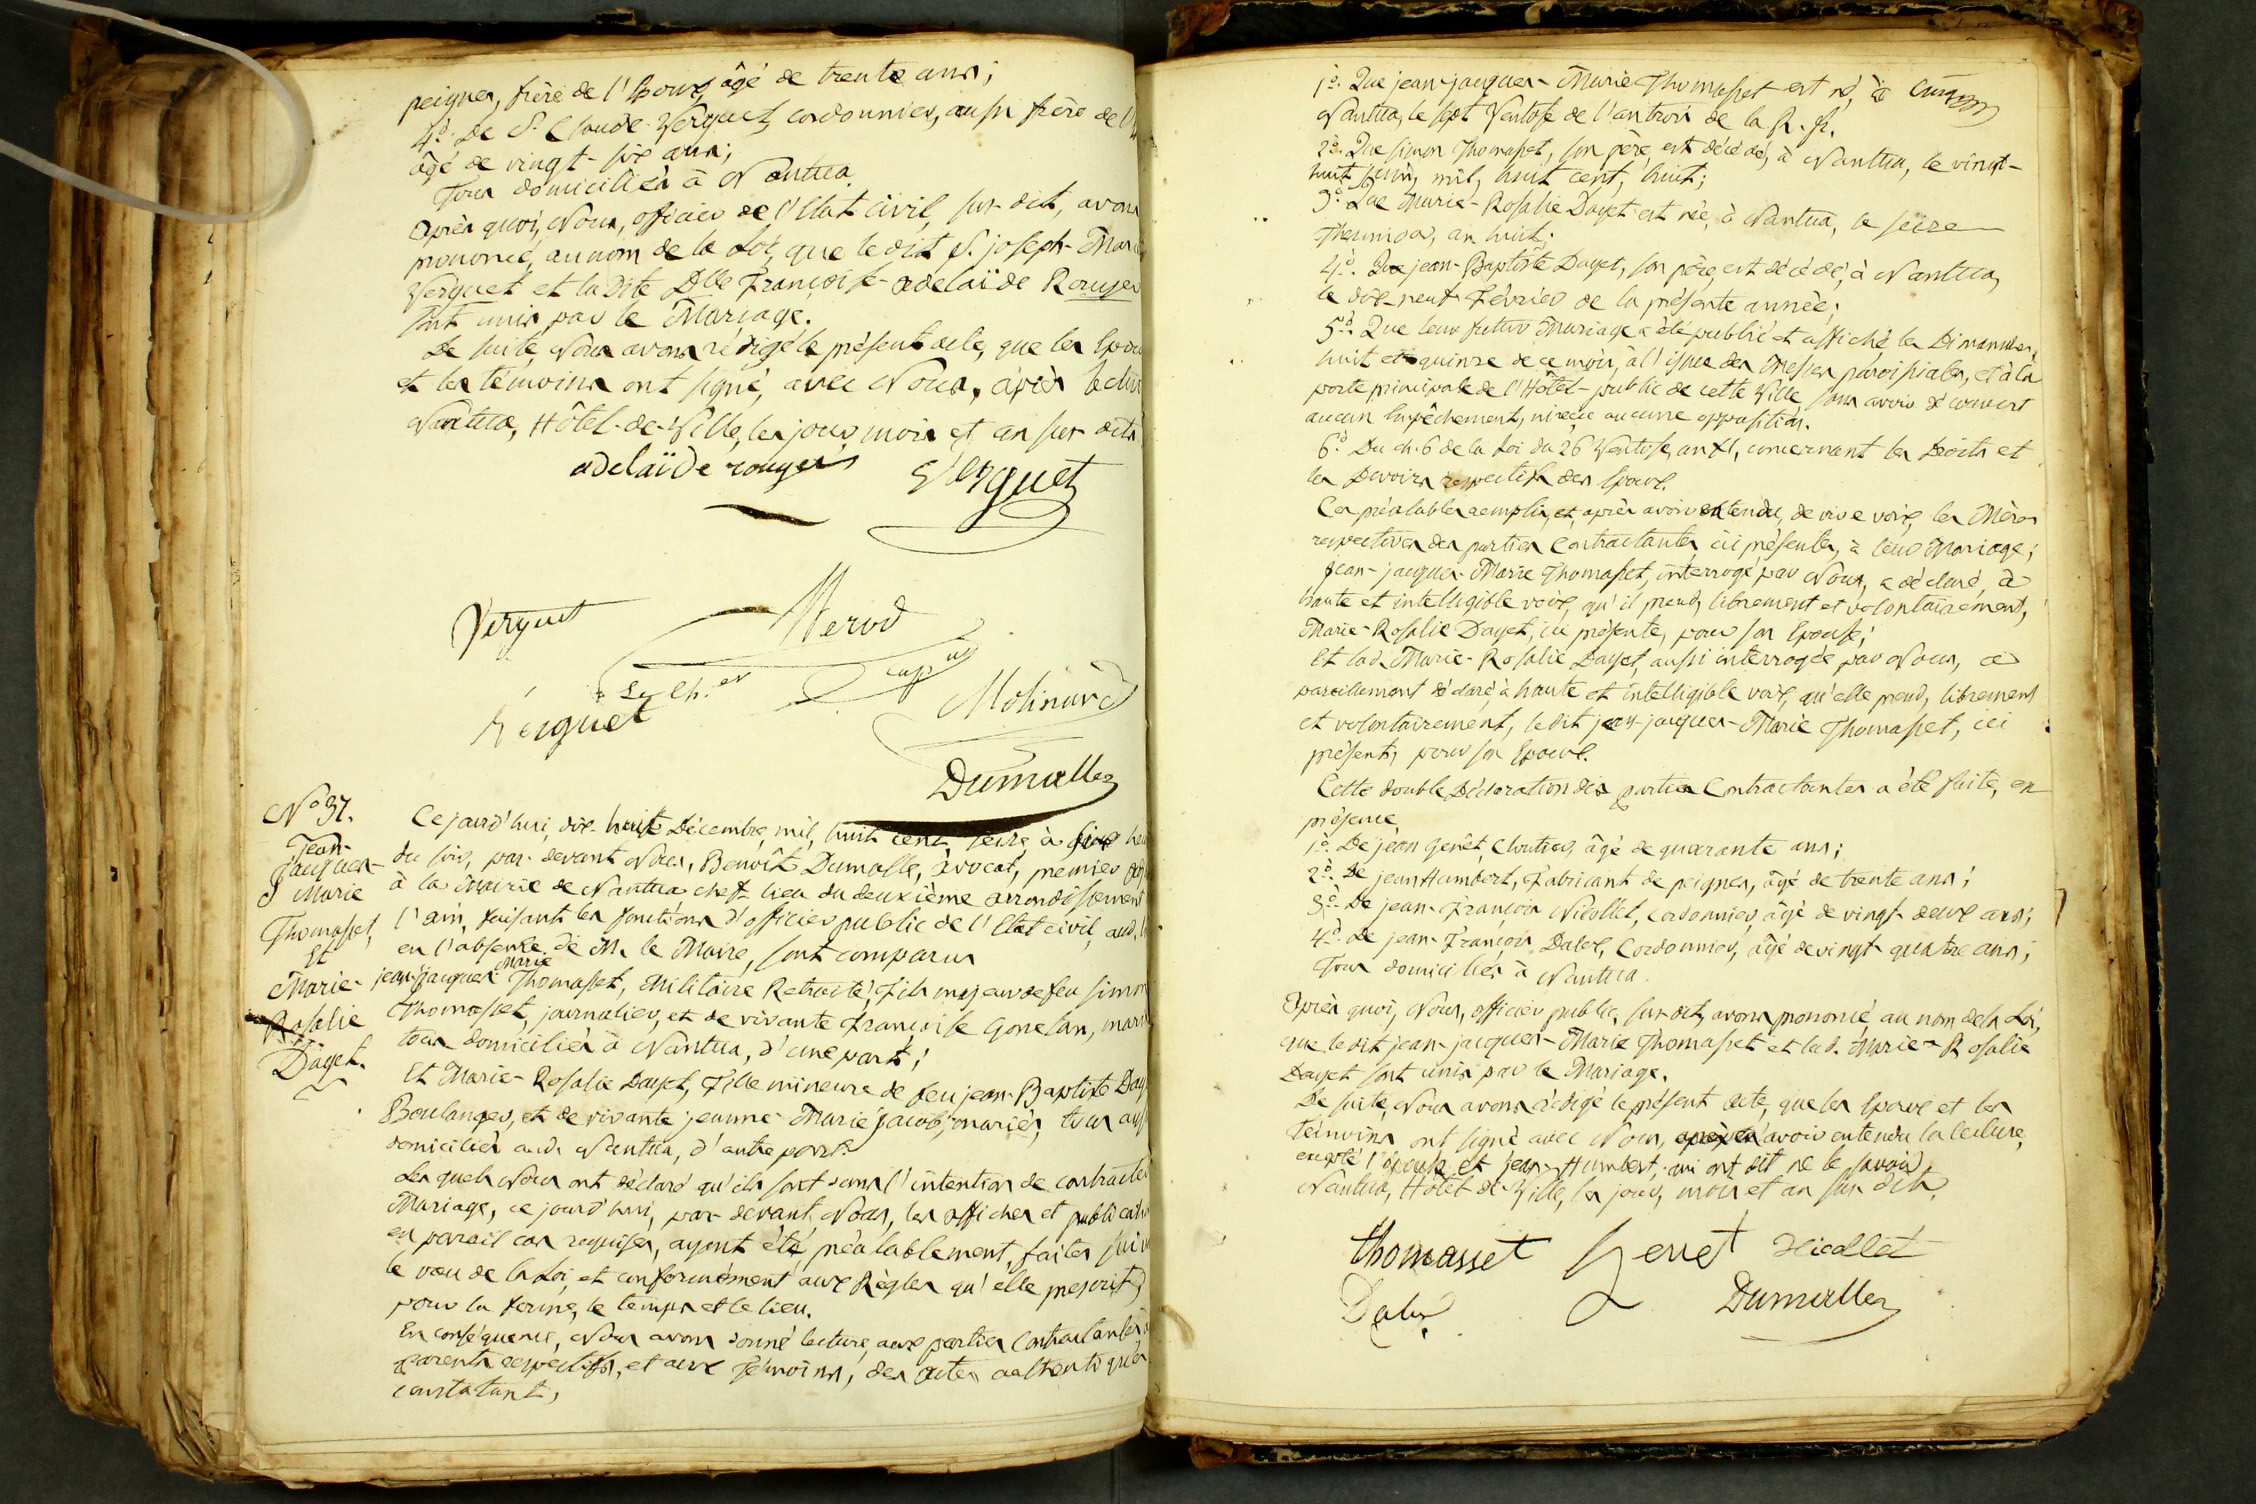 peignes, frère de l'Epoux, âgé de trente ans;
4.° De S.r Claude Verguet, cordonnier, aussi frère de l'
âgé de vingt-six ans;
Tous domiciliés à Nantua.
Après quoi, Nous, officier de l'Etat civil, sus-dit, avons
prononcé, au nom de la Loi, que le dit S. joseph-Marie
Verguet et la dite Dlle Françoise-adelaïde Rouyer
sont unis par le Mariage.
De suite, Nous avons rédigé le présent acte, que les Epoux
et les témoins ont signé, avec Nous, après lecture
Nantua, Hôtel-de-Ville, les jour, mois et an sus-dits
adelaïde rouyer Verguet
Verguet
Verguet Molinard
Dumalle
N.° 37.
Jean-
Jacques-
Marie
Thomasset,
Et
Marie-
Rosalie
Dayet.
Ce jourd'hui, dix-huit Décembre, mil, huit cent, seize, à six heures
du soir, par-devant Nous, Benoît Dumalle, avocat, premier adj
à la Mairie de Nantua chef-lieu du deuxième arrondissement
l'ain, faisant les fonctions d'officier public de l'Etat civil, aud. l
en l'absence de M. le Maire, sont comparus
jean-jacques Marie Thomasset, Militaire Retraité, Fils majeur de feu Simon
Thomasset, journalier, et de vivante Françoise Gonesan, mariés
tous domiciliés à Nantua, d'une part;
Et Marie-Rosalie Dayet, Fille mineure de feu jean-Baptiste Day
Boulanger, et de vivante jeanne-Marie jacob, mariés, tous aussi
domiciliés aud. Nantua, d'autre part.
Lesquels Nous ont déclaré qu'ils sont dans l'intention de contracter
Mariage, ce jourd'hui, par-devant Nous, les affiches et publications
en pareil cas requises, ayant été préalablement faites suiv
le vœu de la Loi, et conformément aux Règles qu'elle prescrit
pour la forme, le temps et le lieu.
En conséquence, Nous avons donné lecture, aux parties contractantes
parents respectifs, et aux Témoins, des actes authentiques
constatant,
1.° Que jean-jacques-Marie Thomasset est né, à
Nantua, le sept Ventose de l'an trois de la R. fr.
2.° Que Simon Thomasset, son père, est décédé, à Nantua, le vingt-
huit juin, mil, huit cent, huit;
3.° Que Marie-Rosalie Dayet est née, à Nantua, le seize
Thermidor, an huit;
4.° Que jean-Baptiste Dayet, son père, est décédé, à Nantua,
le dix-neuf Février de la présente année;
5.° Que leur futur Mariage a été publié et affiché les Dimanches,
huit et quinze de ce mois, à l'issue des Messes paroissiales, et à la
porte principale de l'Hôtel-public de cette Ville sans avoir découvert
aucun Empêchement, ni reçu aucune opposition.
6.° Du ch. 6 de la Loi du 26 Ventose, an XI, concernant les Droits et
les Devoirs respectifs des Epoux.
Ces préalables remplis, et après avoir entendu, de vive voix, les Mères
respectives des parties Contractantes, ici présentes, à leur Mariage;
Jean-jacques-Marie Thomasset, interrogé par Nous, a déclaré, à
haute et intelligible voix, qu'il prend, librement et volontairement,
Marie-Rosalie Dayet, ici présente, pour son Epouse;
Et lad. Marie-Rosalie Dayet, aussi interrogée par Nous, a
pareillement déclaré, à haute et intelligible voix, qu'elle prend, librement
et volontairement, ledit jean-jacques-Marie Thomasset, ici
présent, pour son Epoux.
Cette double Déclaration des parties Contractantes a été faite, en
présence
1.° De jean Genêt, Cloutier, âgé de quarante ans;
2.° De jean Humbert, Fabricant de peignes, âgé de trente ans;
3.° De jean-François Nicollet, Cordonnier, âgé de vingt-deux ans;
4.° De jean-François Dalex, Cordonnier, âgé de vingt-quatre ans;
Tous domiciliés à Nantua.
Après quoi, Nous, officier public, sus-dit, avons prononcé, au nom de la Loi,
que ledit jean-jacques-Marie Thomasset et lad. Marie-Rosalie
Dayet sont unis par le Mariage.
De suite, Nous avons rédigé le présent acte, que les Epoux et les
Témoins ont signé avec Nous, après avoir entendu la lecture,
excepté l'épouse et Jean-Humbert, qui ont dit ne le savoir
Nantua, Hôtel-de-Ville, les jour, mois et an sus-dits.
Thomasset Genet Nicollet
Dalex Dumalle